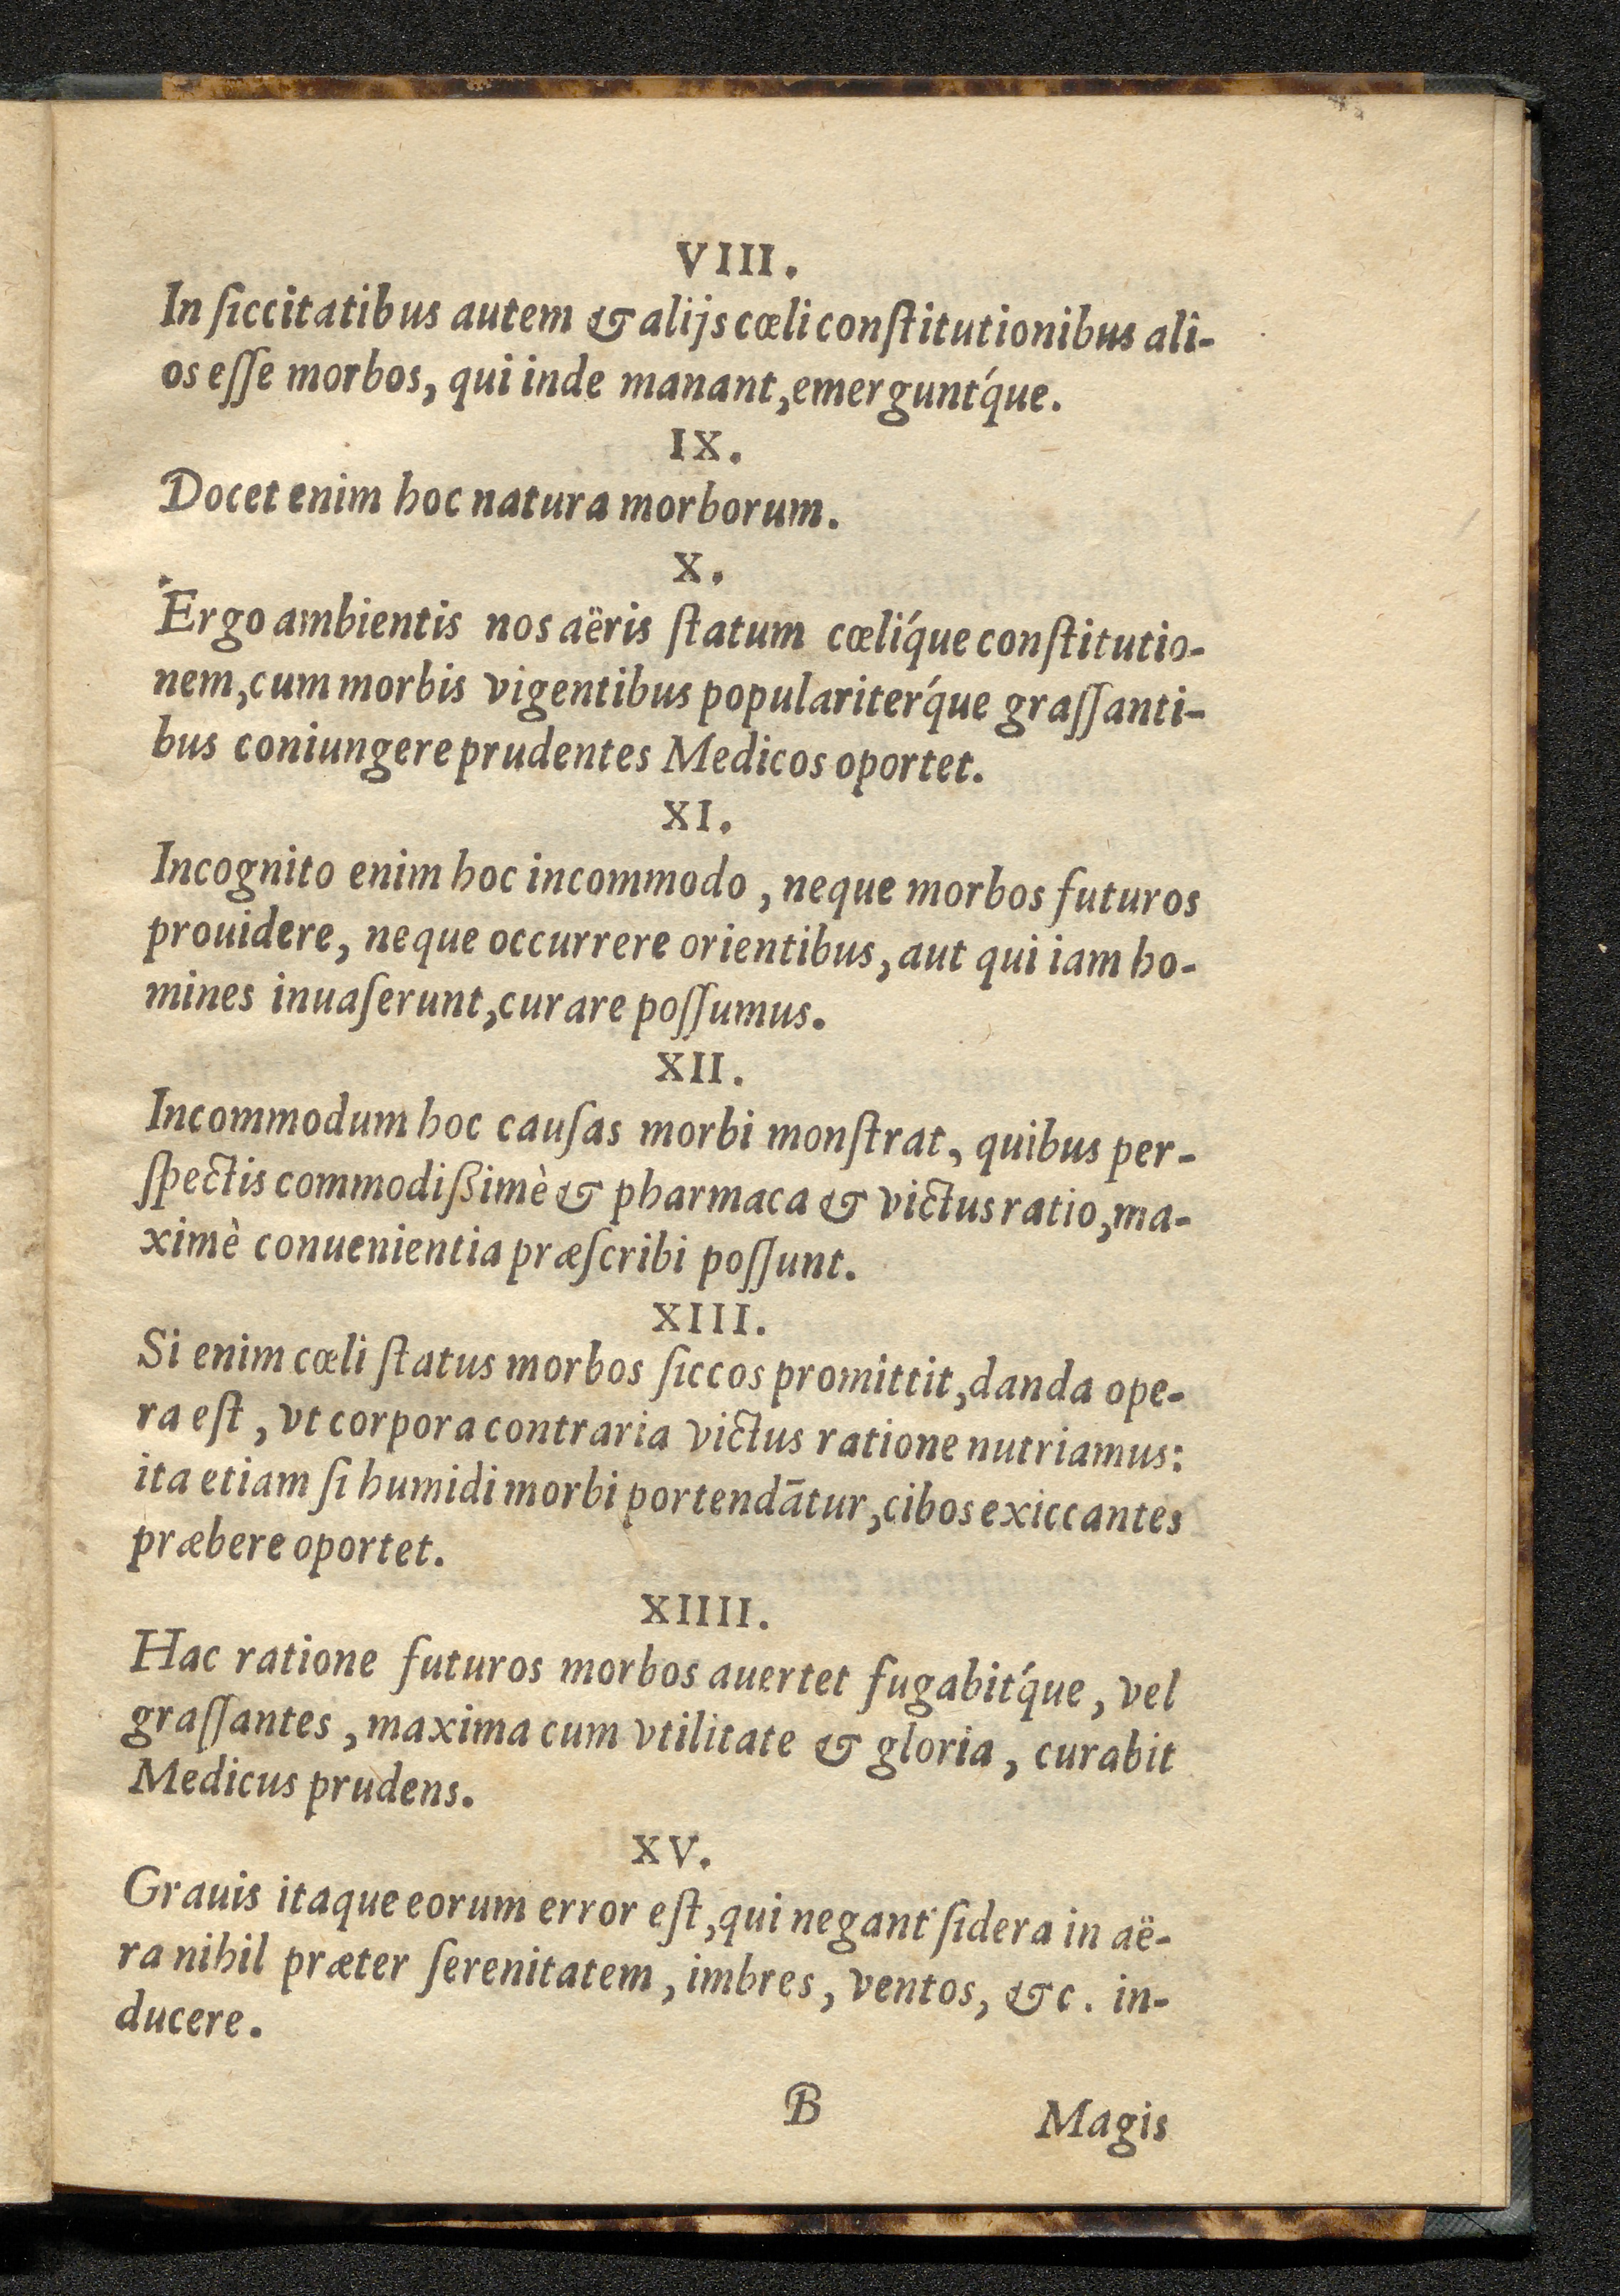 VIII.
In ſiccitatibus autem & alijs cœli conſtitutionibus ali-
os eſſe morbos, qui inde manant, emergunt́que.
IX.
Docet enim hoc natura morborum.
X.
Ergo ambientis nos aëris ſtatum cœlíque conſtitutio-
nem, cum morbis vigentibus populariteŕque graſſanti-
bus coniungere prudentes Medicos oportet.
XI.
Incognito enim hoc incommodo, neque morbos futuros
prouidere, neque occurrere orientibus, aut qui iam ho-
mines inuaſerunt, curare poſſumus.
XII.
Incommodum hoc cauſas morbi monſtrat, quibus per-
ſpectis commodißimè & pharmaca & victus ratio, ma-
ximè conuenientia præſcribi poſſunt.
XIII.
Si enim cœli ſtatus morbos ſiccos promittit, danda ope-
ra eſt, vt corpora contraria victus ratione nutriamus:
ita etiam ſi humidi morbi portendātur, cibos exiccantes
præbere oportet.
XIIII.
Hac ratione futuros morbos auertet fugabit́que, vel
graſſantes, maxima cum vtilitate & gloria, curabit
Medicus prudens.
XV.
Grauis itaque eorum error eſt, qui negant ſidera in aë-
ra nihil præter ſerenitatem, imbres, ventos, &c. in-
ducere.
B Magis